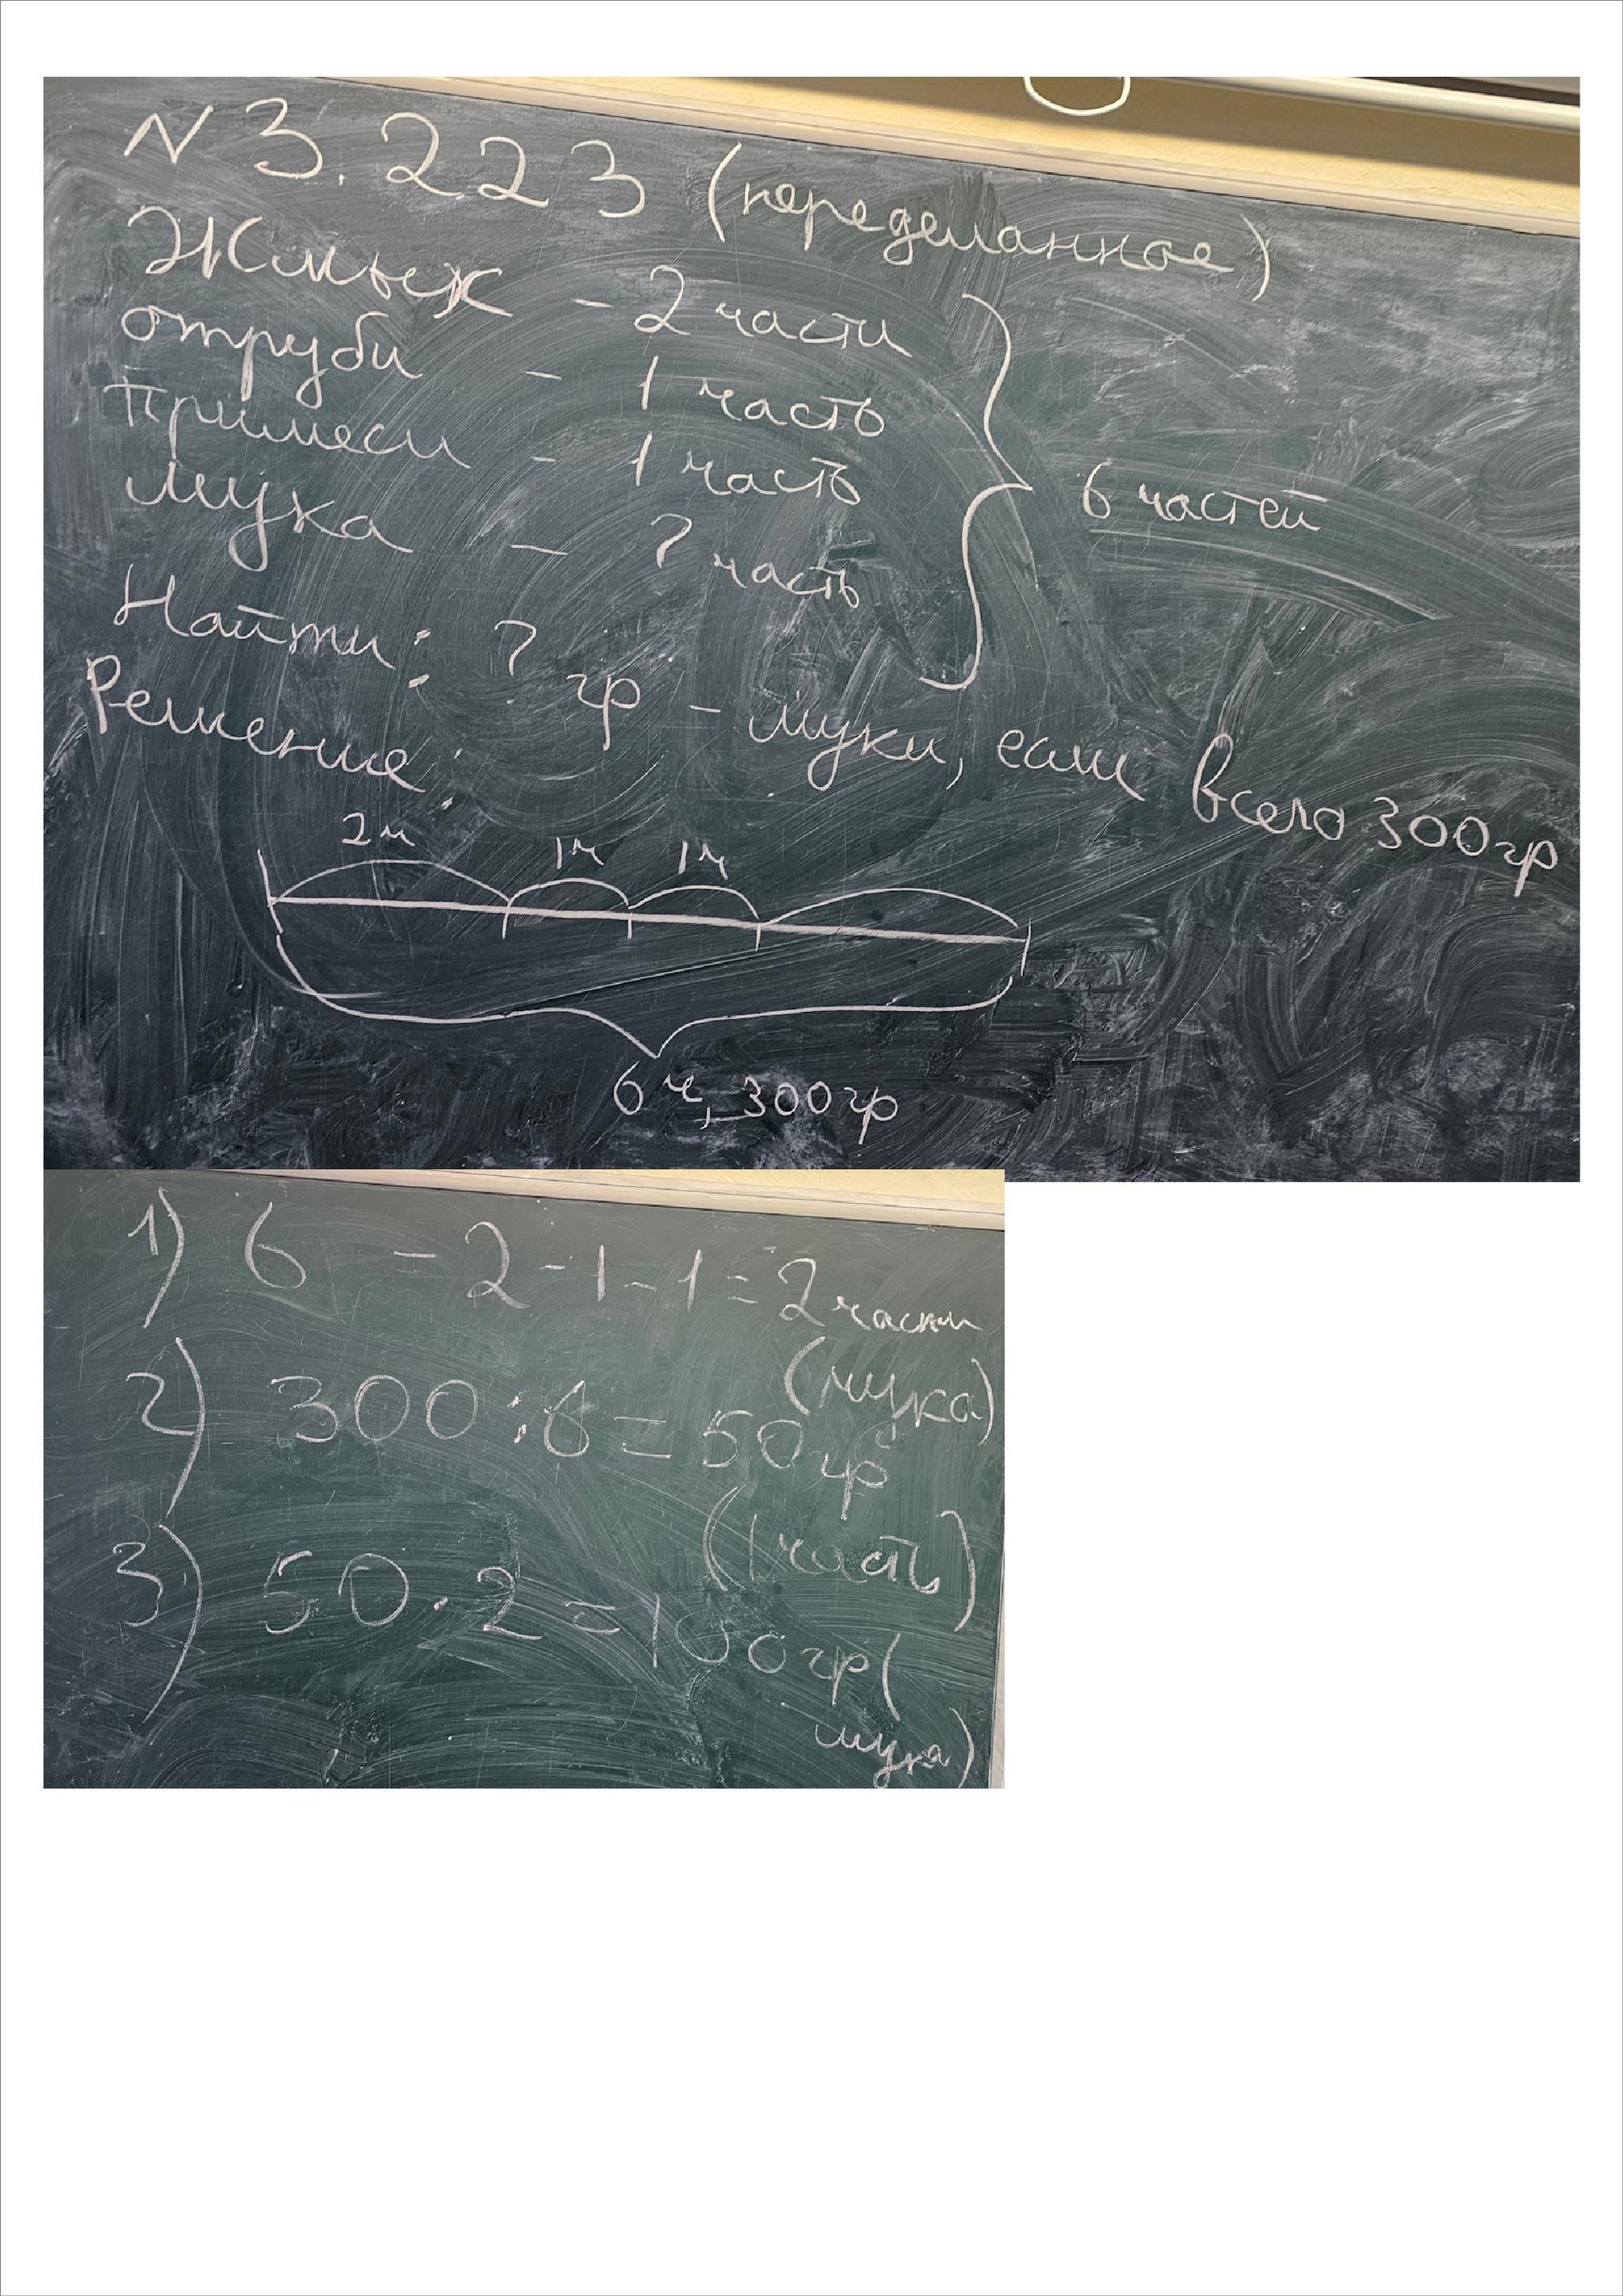 N 3.223 (переделанное)
Жмых - 2 части
отруби - 1 часть
Примеси - 1 часть
6 частей
мука - ? часть
Найти: ? гр - муки, если всего 300гр
Решение:
2ч 1ч 1ч
6ч, 300гр
1) 6 - 2 - 1 - 1 = 2 части
(мука)
2) 300 : 6 = 50гр
(1 часть)
3) 50 · 2 = 100гр (
мука)